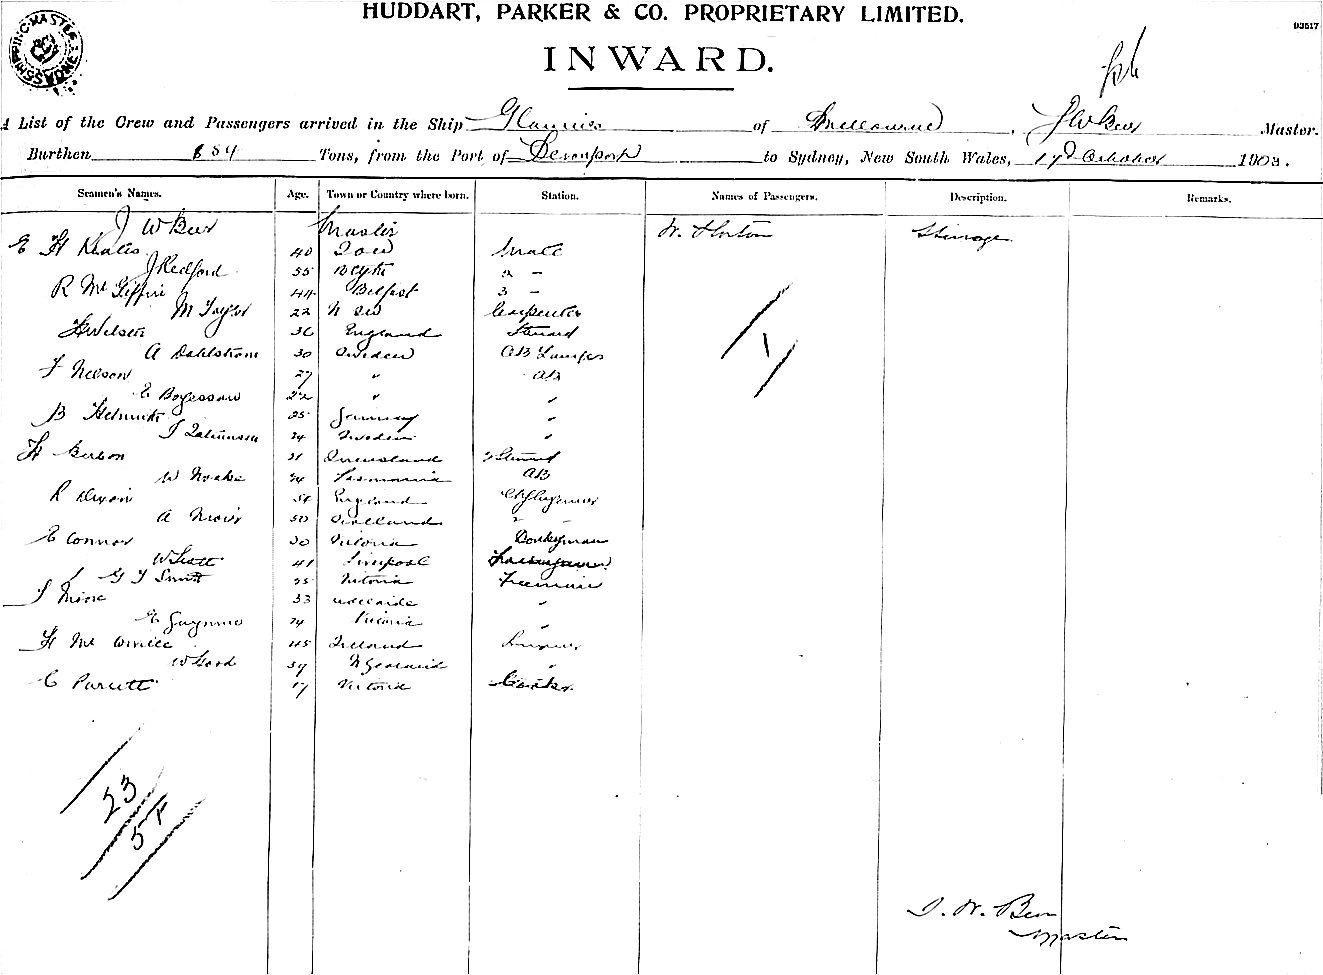 HUDDART, PARKER & CO. PROPRIETARY LIMITED.
93517
INWARD.
A List of the Crew and Passengers arrived in the Ship Glaucus of Melbourne, J W Beer Master.
Burthen 884 Tons, from the Port of Devonport to Sydney, New South Wales, 17 October 1903.
Seamen's Names. Age. Town or Country where born. Station. Names of Passengers. Description. Remarks.
J W Beer Master W. Horton Steerage
E H 40 Mate
J Redford 55 Blyth 2 -
R Mc Giffin 44 Belfast 3 -
M Taylor 22 N S W Carpenter
H Wilson 36 England Steward
A Dahlstrom 30 Sweden AB Lamps
F Nelson 27 " AB
E Bogessow 22 " "
B Helmuth 25 Germany "
J 24 Sweden "
H 21 Queensland 2 Steward
W Noake 24 Tasmania AB
R Dixon 54 England
A 50 " -
E Connor 30 Victoria Donkeyman
W Scott 41 Liverpool
G J Smith 25 Victoria Fireman
J 33 Adelaide "
E Gwynne 24 Victoria "
H Mc 45 Ireland
W Good 39 N Zealand "
C 17 Victoria Cook
23
J. W. Beer
Master